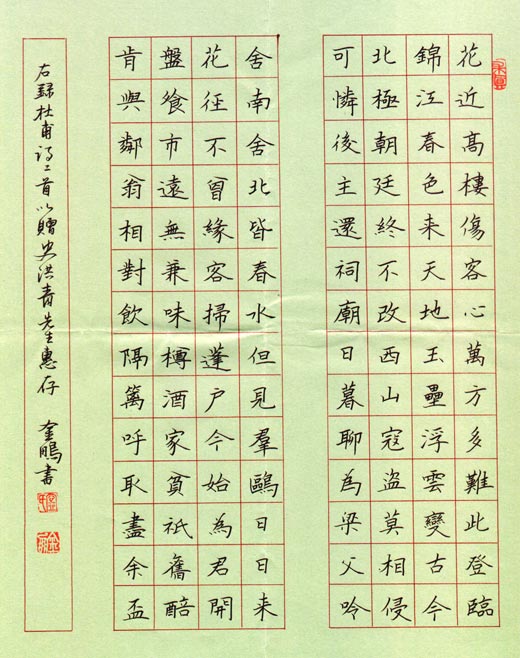 花近高樓傷客心萬方多難此登臨
錦江春色来天地玉壘浮雲變古今
北極朝廷終不改西山寇盗莫相侵
可憐後主還祠廟日暮聊為梁父吟
舍南舍北皆春水但見羣鷗日日来
花径不曾緣客掃蓬户今始為君開
盤飧市遠無兼味樽酒家貧祇舊醅
肯與鄰翁相對飲隔籬呼取盡余盃
右録杜甫詩二首以贈史洪青先生惠存 金鵬書